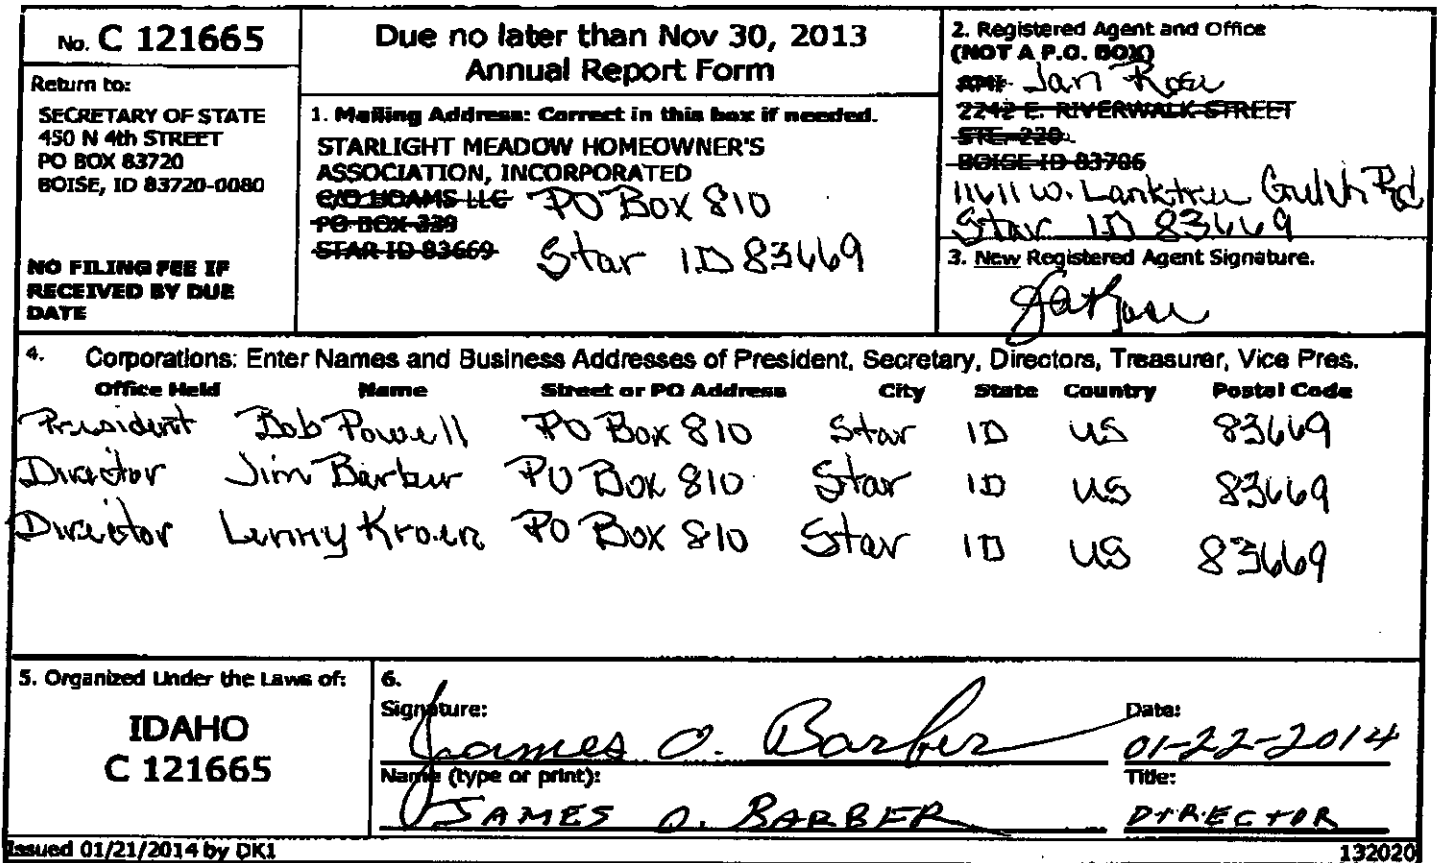 No. C 121665
Return to:
SECRETARY OF STATE
450 N 4th STREET
PO BOX 83720
BOISE, ID 83720-0080
NO FILING FEE IF
RECEIVED BY DUE
DATE
Due no later than Nov 30, 2013
Annual Report Form
1. Mailing Address: Correct in this box if needed.
STARLIGHT MEADOW HOMEOWNER'S
ASSOCIATION, INCORPORATED
C/O HOAMS LLC PO Box 810
PO BOX 339
STAR ID 83669 Star ID 83669
2. Registered Agent and Office
(NOT A P.O. BOX)
AMI Jan Rose
2242 E. RIVERWALK STREET
STE. 220
BOISE ID 83706
11611 W. Lanktree Gulch Rd
Star ID 83669
3. New Registered Agent Signature.
4. Corporations: Enter Names and Business Addresses of President, Secretary, Directors, Treasurer, Vice Pres.
Office Held Name Street or PO Address City State Country Postal Code
President Bob Powell PO Box 810 Star ID US 83669
Director Jim Barber PO Box 810 Star ID US 83669
Director Lenny PO Box 810 Star ID US 83669
5. Organized Under the Laws of:
IDAHO
C 121665
6.
Signature: James O. Barber Date: 01-22-2014
Name (type or print): JAMES O. BARBER Title: DIRECTOR
Issued 01/21/2014 by DK1 132020